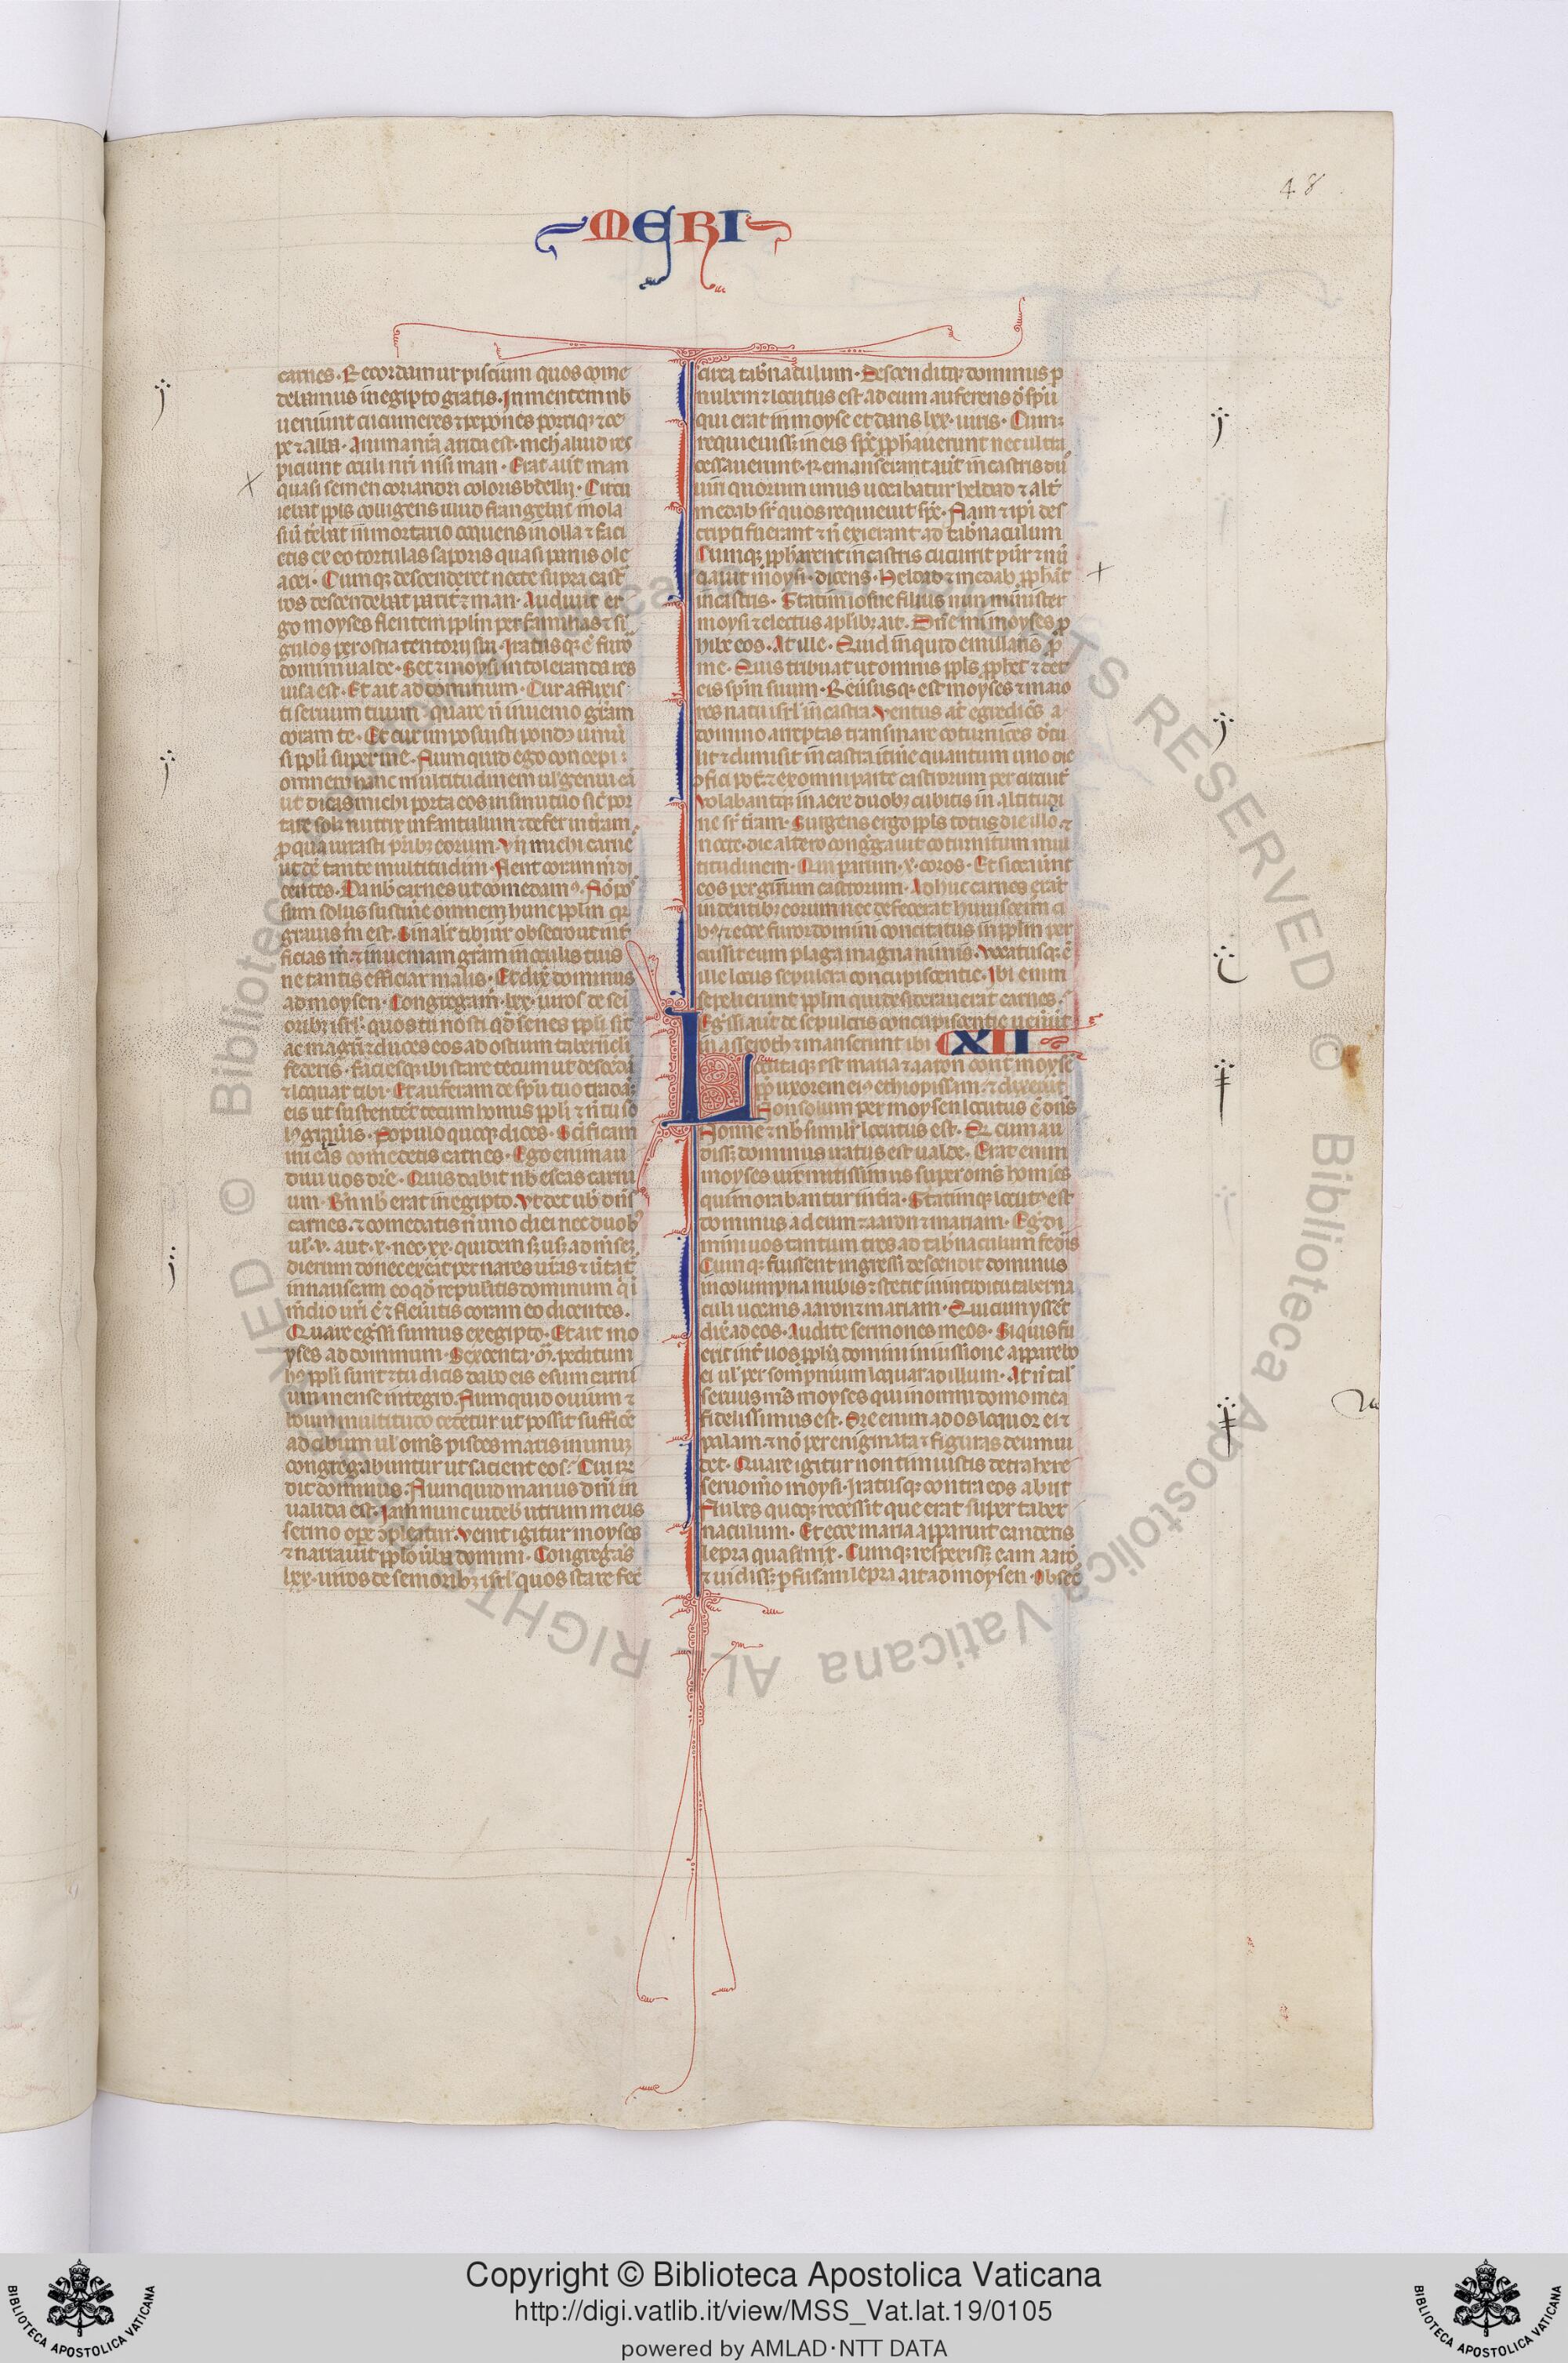 48
MERI
carnes. Recordamur piscium quos come
debamus in egipto gratis. In mentem nb̄
ueniunt cucumeres ⁊ pepones porriq; ⁊ ce
pe ⁊ allia. Anima nr̄a arida est. nich̄ aliud res
piciunt oculi nr̄i nisi man. Erat aut̄ man
quasi semen coriandri coloris bdellij. Circu
iebat ppl̄s colligens illud frangebat mola
siue terebat in mortario coquens in olla ⁊ faci
ens ex eo tortulas saporis quasi panis ole
acei. Cumq; descenderet nocte supra cast̄
ros descendebat parit̄ ⁊ man. Audiuit er
go moyses flentem ppl̄m per familias ⁊ si
gulos per ostia tentorij sui. Iratusq; ē furor
domini ualde. Set ⁊ moysi intoleranda res
uisa est. Et ait ad dominum. Cur afflixis
ti seruum tuum quare n̄ inuenio gr̄am
coram te. Et cur imposuisti pondꝰ uniu̾
si ppl̄i super me. Numquid ego concepi
omnem hanc multitudinem ul̄ genui eā
ut dicas michi porta eos in sinu tuo sic̄ por
tare solȝ nutrix infantulum ⁊ defer in tr̄am
ꝓ qua iurasti pr̄ibȝ eorum. Vn̄ michi carnē
ut dē tante multitudini. Flent coram m̄ di
centes. Da nb̄ carnes ut comedamꝰ. Nō pos
sum solus sustinē omnem hunc ppl̄m qr̄
grauis m̄ est. Sin alit̄ tibi uir̄ obsecro ut int̄
ficias m̄. ⁊ inueniam gr̄am in oculis tuis
ne tantis efficiar malis. Et dix̄ dominus
ad moysen. Congrega m̄ .lxx. uiros de sei
oribȝ isrl̄. quos tu nosti qd̄ senes ppl̄i sit̄
ac magr̄i ⁊ duces eos ad ostium tabernacl̄i
federis. faciesq; ibi stare tecum ut descēdā
⁊ loquar tibi. Et auferam de spū tuo tradāq;
eis ut sustentēt tecum honus ppl̄i ⁊ n̄ tu so
lꝰ grauēis. Populo quoq; dices. Sc̄ificam
ini cras comedetis carnes. Ego enim au
diui uos dice. Quis dabit nb̄ escas carni
um. Bn̄ nb̄ erat in egipto. Vt det ub̄ dn̄s
carnes. ⁊ comedatis n̄ uno die nec duobꝰ
ul̄ .v. aut .x. nec .xx. quidem sȝ usq; ad mēsem
dierum donec exeat per nares ur̄as ⁊ uertat̄
in nauseam eo qd̄ repulitis dominum qi
in medio ur̄i ē ⁊ fleueritis coram eo dicentes.
Quare egssi sumus ex egipto. Et ait mo
yses ad dominum. Sexcenta .m̄. peditum
hꝰ ppl̄i sunt ⁊ tu dicis dabo eis esum carni
um mense integro. Numquid ouium ⁊
boum multitudo cedetur ut possit sufficē
ad cibum ul̄ om̄s pisces maris in unum
congregabuntur ut satient eos. Cui rn̄
dit dominus. Numquid manus dn̄i in
ualida est. Iam nunc uideb̄ utrum meus
sermo opē ꝯpleatur. Venit igitur moyses
⁊ narrauit ppl̄o uerba domini. Congregās
lxx. uiros de senioribȝ isrl̄ quos stare fec̄
circa tabn̄aculum. Descenditq; dominus p
nubem ⁊ locutus est ad eum auferens d̄ spū
qui erat in moyse et dans lxx. uiris. Cumq;
requieuissȝ in eis spc̄ ꝓph̄auerunt nec ultra
cessauerunt. Remanserant aut̄ in castris duo
uiri quorum unus uocabatur heldad ⁊ alt̄
medab sr̄ quos requieuit spc̄. Nam ⁊ ipi des
cripti fuerant ⁊ n̄ exierant ad tabn̄aculum
Cumq; ꝓph̄arent in castris cucurrit puer ⁊ nū
ciauit moysi. dicens. Heldad ⁊ medab ꝓphāt
in castris. Statim iosue filius nun minister
moysi ⁊ electus a plibȝ ait. Dn̄e mi moyses ꝓ
hibe eos. At ille. Quid inquid emularis ꝓ
me. Quis tribuat ut omnis ppl̄s ꝓphet ⁊ det
eis spm̄ suum. Reuersusq; est moyses ⁊ maio
res natu isrl̄ in castra. Ventus at̄ egrediēs a
domino arreptas trans mare coturnices detu
lit ⁊ dimisit in castra itinē quantum uno die
ꝯfici pot̄. ⁊ ex omni parte castrorum per circuit̄
Volabantq; in aere duobȝ cubitis in altitudi
ne sr̄ tr̄am. Surgens ergo ppl̄s totus die illo. ⁊
nocte. die altero congregauit coturnicum mul
titudinem. Qui parum .x. coros. Et siccauer̄nt
eos per girum castrorum. Adhuc carnes erāt
in dentibȝ eorum nec defecerat huiuscem̄ ci
bꝰ. ⁊ ecce furor domini concitatus in ppl̄m per
cussit eum plaga magna nimis. Vocatusq; ē
ille locus sepulcra concupiscentie. Ibi enim
sepelierunt ppl̄m qui desiderauerat carnes.
Egssi aut̄ de sepulcris concupiscentie uenērt
in asseroth ⁊ manserunt ibi CXII
Locutaq; est maria ⁊ aaron cont̄ moysē
ꝓp̄ uxorem eiꝰ ethiopissam. ⁊ dixerūt
Non solum per moysen locutus ē dn̄s
Nonne ⁊ nb̄ simili̾ locutus est. Qd̄ cum au
dissȝ dominus iratus est ualde. Erat enim
moyses uir mitissimus super om̄is homies
qui morabantur in tr̄a. Statimq; locutꝰ est
dominus ad eum ⁊ aaron ⁊ mariam. Egdi
mini uos tantum tres ad tabn̄aculum fed̄is
Cumq; fuissent ingressi descendit dominus
in columpna nubis ⁊ stetit in introitu taberna
culi uocans aaron ⁊ mariam. Qui cum yssēt
dix̄ ad eos. Audite sermones meos. Si quis fu
erit int̄ uos ꝓph̄a domini in uissione apparebo
ei ul̄ per sompnium loquar ad illum. At n̄ tal̄
seruus ms̄ moyses qui in omni domo mea
fidelissimus est. Ore enim ad os loquor ei ⁊
palam. ⁊ nō per enigmata ⁊ figuras deum ui
det. Quare igitur non timuistis detrahere
seruo m̄o moysi. Iratusq; contra eos abiit
Nubes quoq; recessit que erat super taber
naculum. Et ecce maria apparuit candens
lepra quasi nix. Cumq; respexissȝ eam aarō
⁊ uidissȝ pfusam lepra ait ad moysen. Obsec̄
Copyright © Biblioteca Apostolica Vaticana
http://digi.vatlib.it/view/MSS_Vat.lat.19/0105
powered by AMLAD·NTT DATA